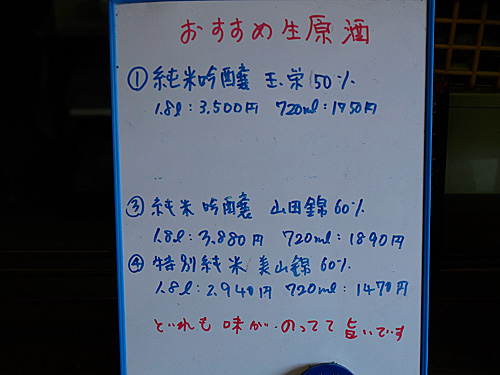 おすすめ生原酒
①純米吟醸 玉栄50%
1.8l:3.500円 720ml:1750円
③純米吟醸 山田錦60%
1.8l:3.880円 720ml:1890円
④特別純米 美山錦60%
1.8l:2.940円 720ml:1470円
どれも味がのってて旨いです